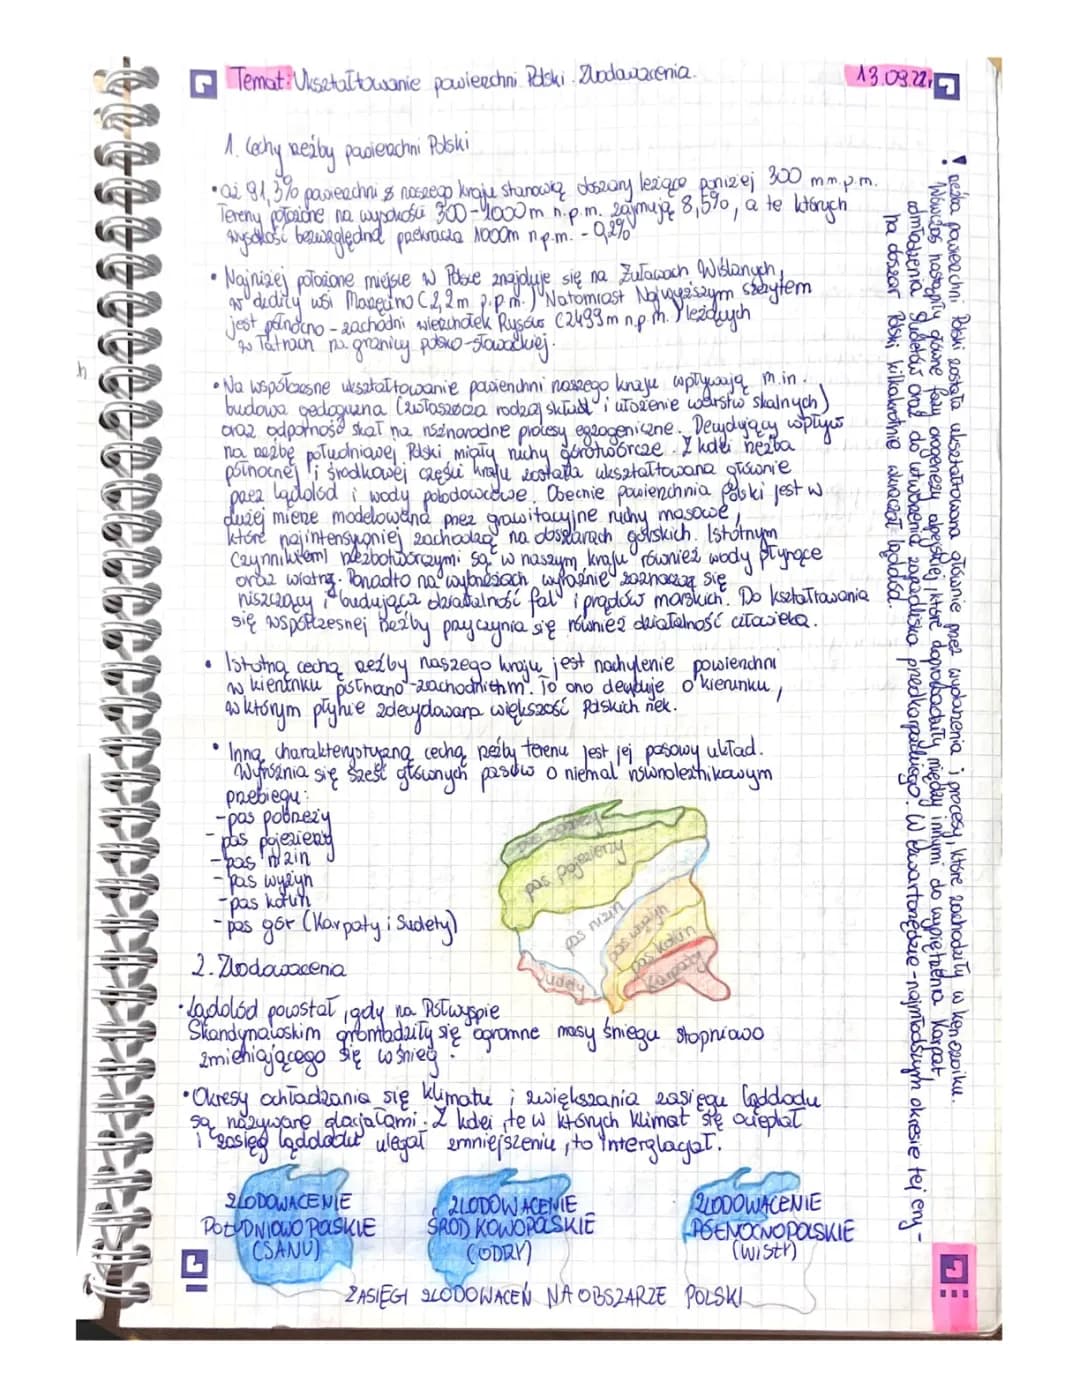 Temat: Ukształtowanie powierzchni Polski. Zlodowacenia.
13.09.22r
1. Cechy rzeźby powierzchni Polski
• aż 91,3% powierzchni z naszego kraju stanowią obszary leżące poniżej 300 m m.p.m.
Tereny położone na wysokości 300-1000m n.p.m. zajmują 8,5%, a te których
wysokość bezwzględna przekracza 1000m n.p.m. - 0,2%
• Najniżej położone miejsce w Polsce znajduje się na Żuławach Wiślanych,
w wsi (2,2m p.p.m.) Natomiast Najwyższym szczytem
jest północno-zachodni wierzchołek Rysów (2499m n.p.m.) leżących
w Tatrach na granicy polsko-słowackiej.
• Na współczesne ukształtowanie powierzchni naszego kraju wpływają m.in.
budowa (zwłaszcza rodzaj skład i ułożenie warstw skalnych)
oraz odporność skał na różnorodne procesy egzogeniczne. Decydujący wpływ
na rzeźbę południowej Polski miały ruchy górotwórcze. Z kolei rzeźba
północnej i środkowej części kraju została ukształtowana głównie
przez lądolód i wody polodowcowe. Obecnie powierzchnia Polski jest w
dużej mierze modelowana przez grawitacyjne ruchy masowe,
które najintensywniej zachodzą na obszarach górskich. Istotnym
czynnikiem rzeźbotwórczymi są w naszym kraju również wody płynące
oraz wiatry. Ponadto na wybrzeżach wyraźnie zaznaczają się
niszcząca i budująca działalność fal i prądów morskich. Do kształtowania
się współczesnej rzeźby przyczynia się również działalność człowieka.
• Istotną cechą rzeźby naszego kraju jest nachylenie powierzchni
w kierunku północno-zachodnim. To ono decyduje o kierunku,
w którym płynie zdecydowana większość polskich rzek.
• Inną charakterystyczną cechą rzeźby terenu jest jej pasowy układ.
Wyróżnia się sześć głównych pasów o niemal równoleżnikowym
przebiegu:
-pas pobrzeży
-pas pojezierzy
-pas nizin
-pas wyżyn
-pas kotlin
-pas gór (Karpaty i Sudety)
pas pobrzeży
pas pojezierzy
pas nizin
pas wyżyn
pas kotlin
Karpaty
Sudety
2. Zlodowacenia
• Lądolód powstał, gdy na Półwyspie
Skandynawskim gromadziły się ogromne masy śniegu stopniowo
zmieniającego się w śnieg.
• Okresy ochładzania się klimatu i zwiększania zasięgu lądolodu
są nazywane glacjałami. Z kolei, te w których klimat się ocieplał
i zasięg lądolodu ulegał zmniejszeniu, to interglacjał.
ZLODOWACENIE
POŁUDNIOWO POLSKIE
(SANU)
ZLODOWACENIE
ŚRODKOWOPOLSKIE
(ODRY)
ZLODOWACENIE
PÓŁNOCNOPOLSKIE
(WISŁY)
ZASIĘGI ZLODOWACEŃ NA OBSZARZE POLSKI
! Rzeźba powierzchni Polski została ukształtowana głównie przez wydarzenia i procesy, które zachodziły w kenozoiku.
Wówczas nastąpiły główne fazy orogenezy alpejskiej, które doprowadziły między innymi do wypiętrzenia Karpat
odmłodzenia Sudetów oraz do utworzenia zapadliska przedkarpackiego. W czwartorzędzie-najmłodszym okresie tej ery-
na obszar Polski kilkakrotnie wkraczał lądolód.